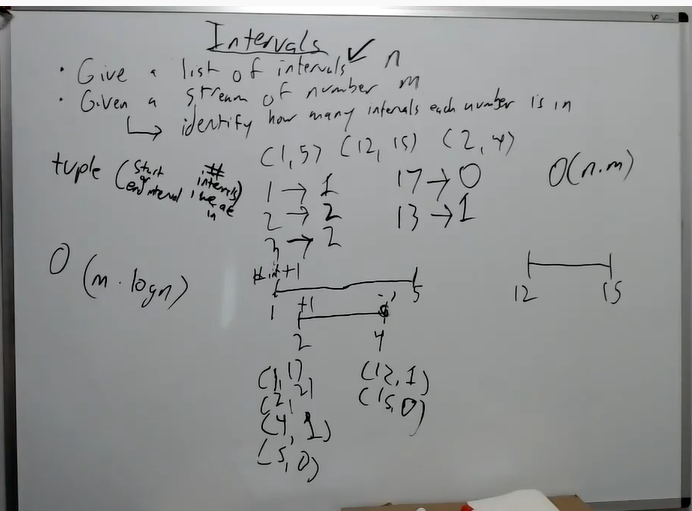 Intervals
• Give a list of intervals ✓ n
• Given a stream of number m
↳ identify how many intervals each number is in
(1, 5) (12, 15) (2, 4)
tuple (start or end interval, # intervals we are in)
1 → 1
2 → 2
3 → 2
17 → 0
13 → 1
O(n.m)
O(m.logn)
+1
1 5
+1
2 4
12 15
(1, 1)
(2, 2)
(4, 1)
(5, 0)
(12, 1)
(15, 0)